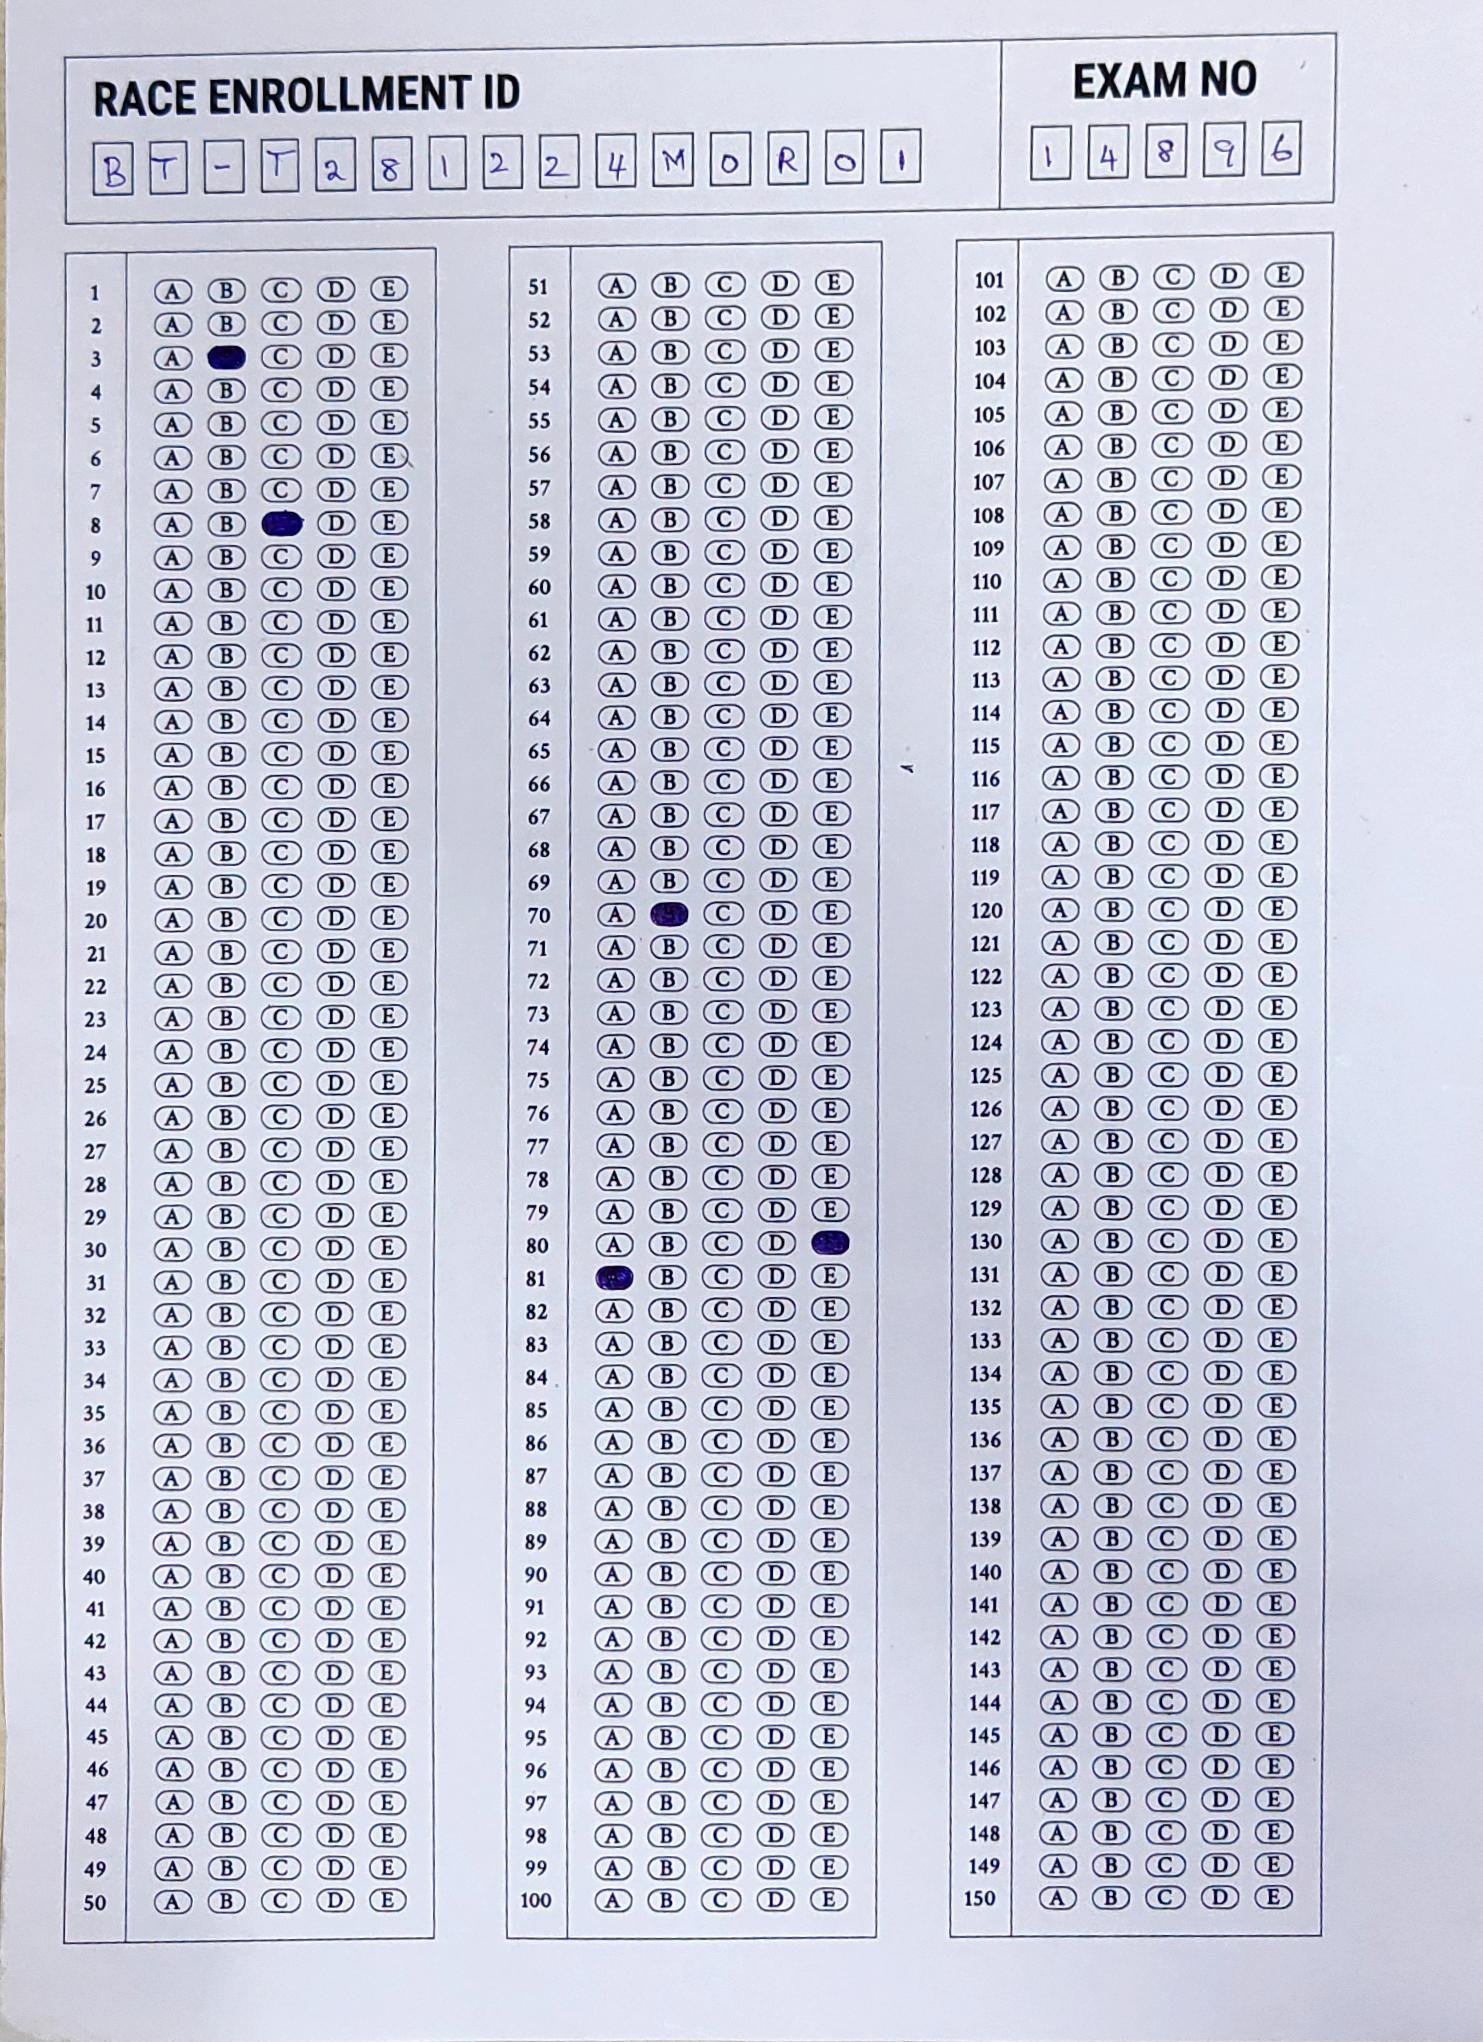 RACE ENROLLMENT ID
EXAM NO
B T - T 2 8 1 2 2 4 M O R 0 1
1 4 8 9 6
1 A B C D E
2 A B C D E
3 A C D E
4 A B C D E
5 A B C D E
6 A B C D E
7 A B C D E
8 A B D E
9 A B C D E
10 A B C D E
11 A B C D E
12 A B C D E
13 A B C D E
14 A B C D E
15 A B C D E
16 A B C D E
17 A B C D E
18 A B C D E
19 A B C D E
20 A B C D E
21 A B C D E
22 A B C D E
23 A B C D E
24 A B C D E
25 A B C D E
26 A B C D E
27 A B C D E
28 A B C D E
29 A B C D E
30 A B C D E
31 A B C D E
32 A B C D E
33 A B C D E
34 A B C D E
35 A B C D E
36 A B C D E
37 A B C D E
38 A B C D E
39 A B C D E
40 A B C D E
41 A B C D E
42 A B C D E
43 A B C D E
44 A B C D E
45 A B C D E
46 A B C D E
47 A B C D E
48 A B C D E
49 A B C D E
50 A B C D E
51 A B C D E
52 A B C D E
53 A B C D E
54 A B C D E
55 A B C D E
56 A B C D E
57 A B C D E
58 A B C D E
59 A B C D E
60 A B C D E
61 A B C D E
62 A B C D E
63 A B C D E
64 A B C D E
65 A B C D E
66 A B C D E
67 A B C D E
68 A B C D E
69 A B C D E
70 A C D E
71 A B C D E
72 A B C D E
73 A B C D E
74 A B C D E
75 A B C D E
76 A B C D E
77 A B C D E
78 A B C D E
79 A B C D E
80 A B C D
81 B C D E
82 A B C D E
83 A B C D E
84 A B C D E
85 A B C D E
86 A B C D E
87 A B C D E
88 A B C D E
89 A B C D E
90 A B C D E
91 A B C D E
92 A B C D E
93 A B C D E
94 A B C D E
95 A B C D E
96 A B C D E
97 A B C D E
98 A B C D E
99 A B C D E
100 A B C D E
101 A B C D E
102 A B C D E
103 A B C D E
104 A B C D E
105 A B C D E
106 A B C D E
107 A B C D E
108 A B C D E
109 A B C D E
110 A B C D E
111 A B C D E
112 A B C D E
113 A B C D E
114 A B C D E
115 A B C D E
116 A B C D E
117 A B C D E
118 A B C D E
119 A B C D E
120 A B C D E
121 A B C D E
122 A B C D E
123 A B C D E
124 A B C D E
125 A B C D E
126 A B C D E
127 A B C D E
128 A B C D E
129 A B C D E
130 A B C D E
131 A B C D E
132 A B C D E
133 A B C D E
134 A B C D E
135 A B C D E
136 A B C D E
137 A B C D E
138 A B C D E
139 A B C D E
140 A B C D E
141 A B C D E
142 A B C D E
143 A B C D E
144 A B C D E
145 A B C D E
146 A B C D E
147 A B C D E
148 A B C D E
149 A B C D E
150 A B C D E